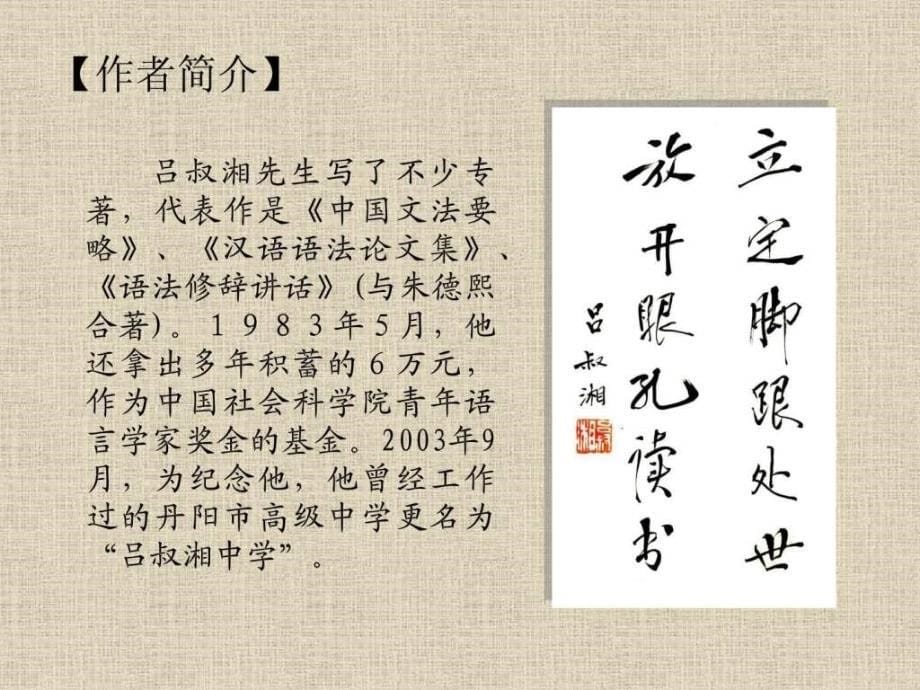 【作者简介】
吕叔湘先生写了不少专
著，代表作是《中国文法要
略》、《汉语语法论文集》、
《语法修辞讲话》(与朱德熙
合著)。１９８３年５月，他
还拿出多年积蓄的６万元，
作为中国社会科学院青年语
言学家奖金的基金。2003年9
月，为纪念他，他曾经工作
过的丹阳市高级中学更名为
“吕叔湘中学”。
立定脚跟处世
放开眼孔读书
吕叔湘